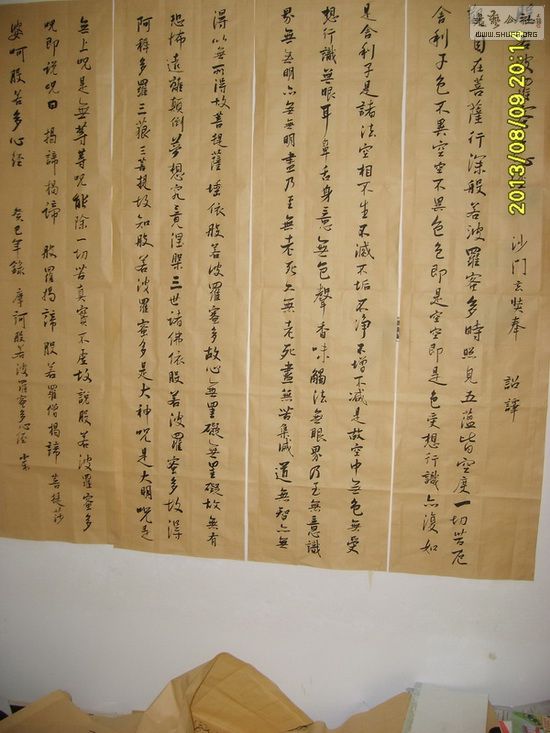 WWW.SHUFA.COM
2013/08/09 20:1
沙门玄奘奉 詔譯
自在菩薩行深般若波羅蜜多時照見五蕴皆空度一切苦厄
舍利子色不異空空不異色色即是空空即是色受想行識亦復如
是舍利子是諸法空相不生不滅不垢不净不增不减是故空中無色無受
想行識無眼耳鼻舌身意無色聲香味觸法無眼界乃至無意識
界無無明亦無無明盡乃至無老死亦無老死盡無苦集滅道無智亦無
得以無所得故菩提薩埵依般若波羅蜜多故心無罣礙無罣礙故無有
恐怖遠離顛倒夢想究竟涅槃三世諸佛依般若波羅蜜多故得
阿耨多羅三藐三菩提故知般若波羅蜜多是大神呪是大明呪是
無上呪是無等等呪能除一切苦真實不虛故説般若波羅蜜多
呪即说呪曰 揭諦揭諦 般羅揭諦 般若羅僧揭諦 菩提莎
婆呵般若多心經 癸巳年錄 摩訶般若波羅蜜多心经